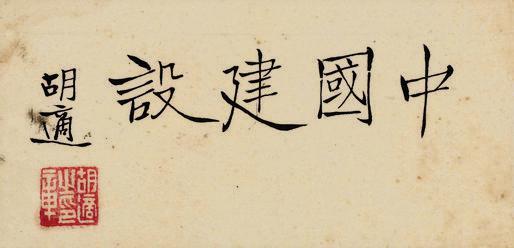 中國建設
胡適
胡適